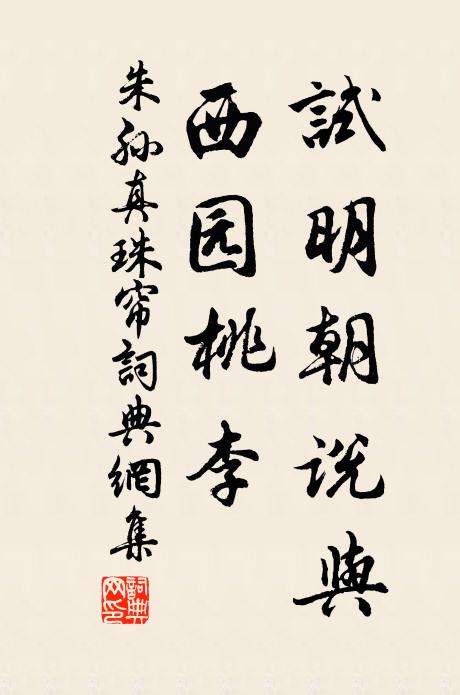 試明朝说與
西园桃李
朱孙真珠帘詞典網集
詞典网印